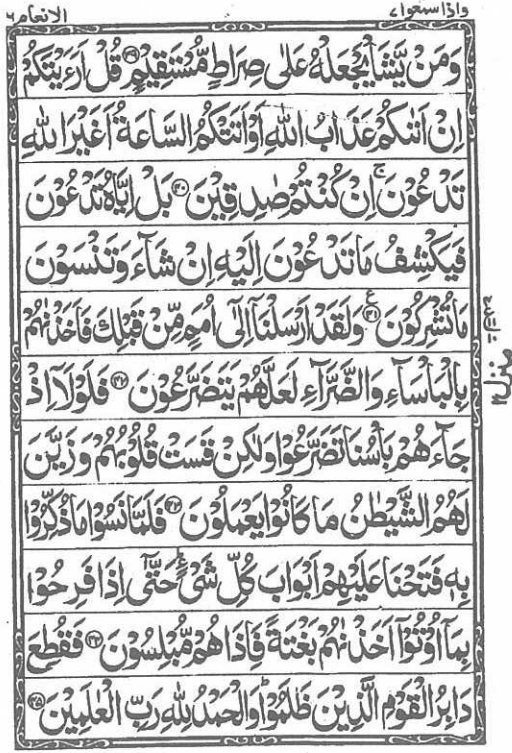 واذا سمعوا ٧
الانعام ٦
وَمَنْ يَّشَاْ يَجْعَلْهُ عَلٰى صِرَاطٍ مُّسْتَقِيْمٍ ﴿۳۹﴾ قُلْ اَرَءَيْتَكُمْ
اِنْ اَتٰىكُمْ عَذَابُ اللّٰهِ اَوْ اَتَتْكُمُ السَّاعَةُ اَغَيْرَ اللّٰهِ
تَدْعُوْنَ ۚ اِنْ كُنْتُمْ صٰدِقِيْنَ ﴿۴۰﴾ بَلْ اِيَّاهُ تَدْعُوْنَ
فَيَكْشِفُ مَا تَدْعُوْنَ اِلَيْهِ اِنْ شَآءَ وَتَنْسَوْنَ
مَا تُشْرِكُوْنَ ﴿۴۱﴾ ع وَلَقَدْ اَرْسَلْنَاۤ اِلٰۤى اُمَمٍ مِّنْ قَبْلِكَ فَاَخَذْنٰهُمْ
بِالْبَاْسَآءِ وَالضَّرَّآءِ لَعَلَّهُمْ يَتَضَرَّعُوْنَ ﴿۴۲﴾ فَلَوْلَاۤ اِذْ
جَآءَهُمْ بَاْسُنَا تَضَرَّعُوْا وَلٰكِنْ قَسَتْ قُلُوْبُهُمْ وَزَيَّنَ
لَهُمُ الشَّيْطٰنُ مَا كَانُوْا يَعْمَلُوْنَ ﴿۴۳﴾ فَلَمَّا نَسُوْا مَا ذُكِّرُوْا
بِهٖ فَتَحْنَا عَلَيْهِمْ اَبْوَابَ كُلِّ شَيْءٍ ؕ حَتّٰۤى اِذَا فَرِحُوْا
بِمَاۤ اُوْتُوْۤا اَخَذْنٰهُمْ بَغْتَةً فَاِذَا هُمْ مُّبْلِسُوْنَ ﴿۴۴﴾ فَقُطِعَ
دَابِرُ الْقَوْمِ الَّذِيْنَ ظَلَمُوْا ؕ وَالْحَمْدُ لِلّٰهِ رَبِّ الْعٰلَمِيْنَ ﴿۴۵﴾
منزل ۲